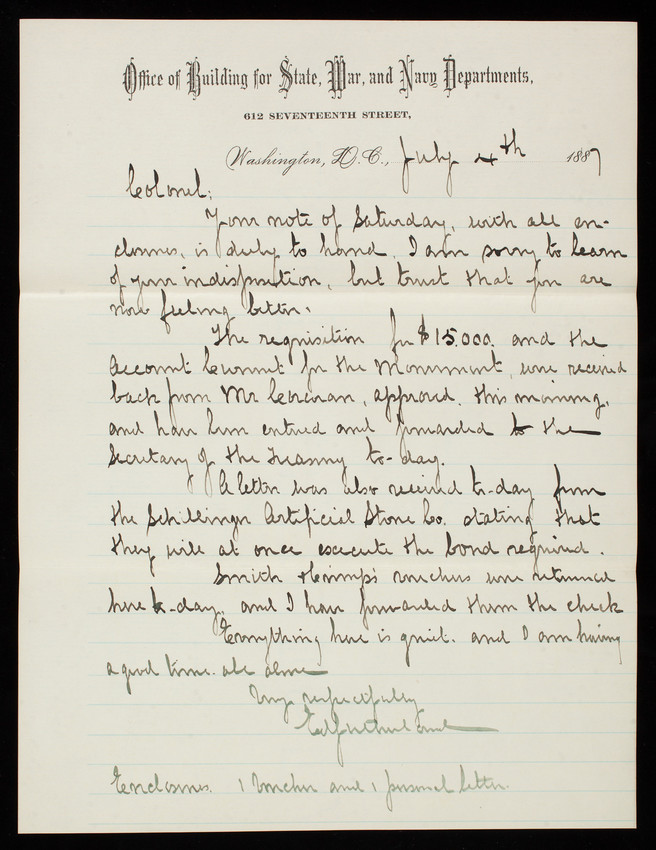 Office of Building for State, War, and Navy Departments,
612 SEVENTEENTH STREET,
Washington, D.C., July 4th 1887
Colonel:
Your note of Saturday, with all en-
closures, is duly to hand. I am sorry to learn
of your indisposition, but trust that you are
now feeling better.
The requisition for $15.000. and the
Account Current for the Monument, were received
back from Mr Corcoran, approved, this morning,
and have been entered and forwarded to the
Secretary of the Treasury to-day.
A letter was also received to-day from
the Schillinger Artificial Stone Co. stating that
they will at once execute the bond required.
Smith vouchers were returned
here to-day, and I have forwarded them the check
Everything here is quiet. and I am having
a good time. all alone
Very respectfully
Enclosures. 1 Voucher and 1 personal letter.